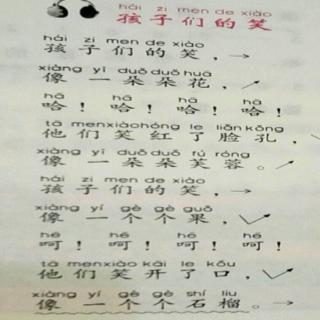 hái zi men de xiào
孩子们的笑
hái zi men de xiào
孩子们的笑，→
xiàng yī duǒ duǒ huā
像一朵朵花，↗
hā hā hā hā
哈！哈！哈！哈！
tā men xiào hóng le liǎn kǒng
他们笑红了脸孔，
xiàng yī duǒ duǒ fú róng
像一朵朵芙蓉。↗
hái zi men de xiào
孩子们的笑，→
xiàng yí gè gè guǒ
像一个个果，
hē hē hē hē
呵！呵！呵！呵！
tā men xiào kāi le kǒu
他们笑开了口，
xiàng yí gè gè shí liu
像一个个石榴。→